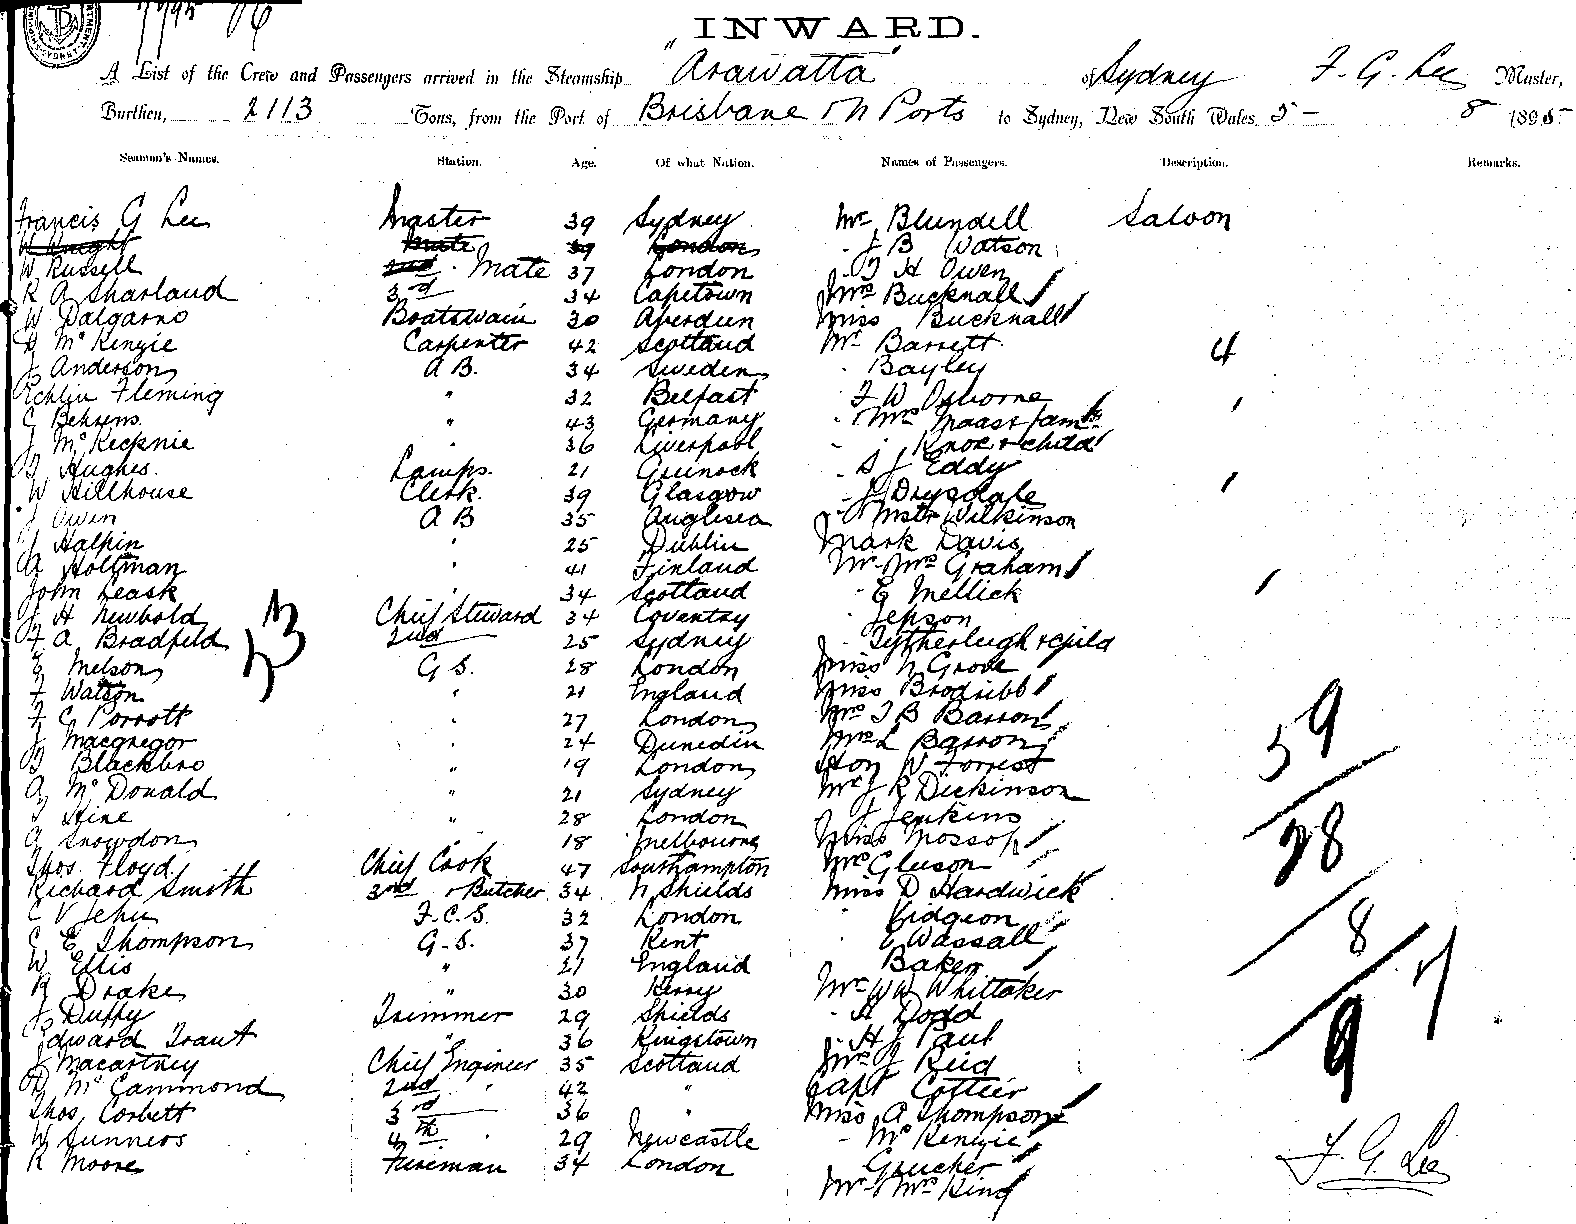 7795 96
INWARD.
A List of the Crew and Passengers arrived in the Steamship "Arawatta" of Sydney F. G. Lee Master,
Burthen, 2113 Tons, from the Port of Brisbane & N Ports to Sydney, New South Wales, 5 - 8 1895
Seamen's Names. Station. Age. Of what Nation. Names of Passengers. Description. Remarks.
Francis G Lee Master 39 Sydney Mr Blundell Saloon
W Knight Mate 39 London - J B Watson
W Russell 2nd Mate 37 London - T H Owen
R A Sharland 3rd 34 Capetown Mrs Bucknall
W Dalgarno Boatswain 30 Aberdeen Miss Bucknall
McKenzie Carpenter 42 Scotland Mr Barrett 4
J Anderson A B. 34 Sweden - Bayley
Echlin Fleming " 32 Belfast F W Osborne
C Behrens " 43 Germany - Mrs Maast & fam
J McKecknie 36 Liverpool - Knox & child
Hughes. Lamps. 21 Greenock - S J Eddy
W Hillhouse Clerk. 39 Glasgow - J Drysdale
J Owen A B 35 Anglisea Mstr Wilkinson
J Halpin " 25 Dublin Mark Davis
A Holtman " 41 Finland Mr & Mrs Graham
John Leask " 34 Scotland - E Mellick
J H Newbold Chief Steward 34 Coventry Jepson
F A Bradfield 2nd 25 Sydney - Tytherleigh & child
53
Nelson G S. 28 London Miss N Grove
F Watson " 21 England Miss Brodribb
F C Porrott " 27 London Mrs T B Barron
J Macgregor " 24 Dunedin Mrs L Barron
B Blackbro " 19 London Hon W Forrest
A McDonald " 21 Sydney Mr J R Dickinson
T Hine " 28 London J Jenkins
G Snowdon 18 Melbourne Miss Mossop
Thos Floyd Chief Cook 47 Southampton Mrs Gleeson
Richard Smith 3rd & Butcher 34 N Shields Miss D Hardwick
C V Jehu F.C.S. 32 London " Pidgeon
C E Thompson G.S. 37 Kent - E Wassall
W Ellis " 21 England Baker
R Drake " 30 Kerry Mr W W Whittaker
J Duffy Trimmer 29 Shields - H Dodd
Edward Trant " 36 Kingstown - H J Paul
J Macartney Chief Engineer 35 Scotland Mrs J Reid
McCammond 2nd " 42 " Capt Cottier
Thos Corbett 3rd 36 " Miss A Thompson
W Sunners 4th " 29 Newcastle - McKenzie
R Moore Fireman 34 London Goucher
Mr & Mrs King
59
28
8
9
F. G. Lee